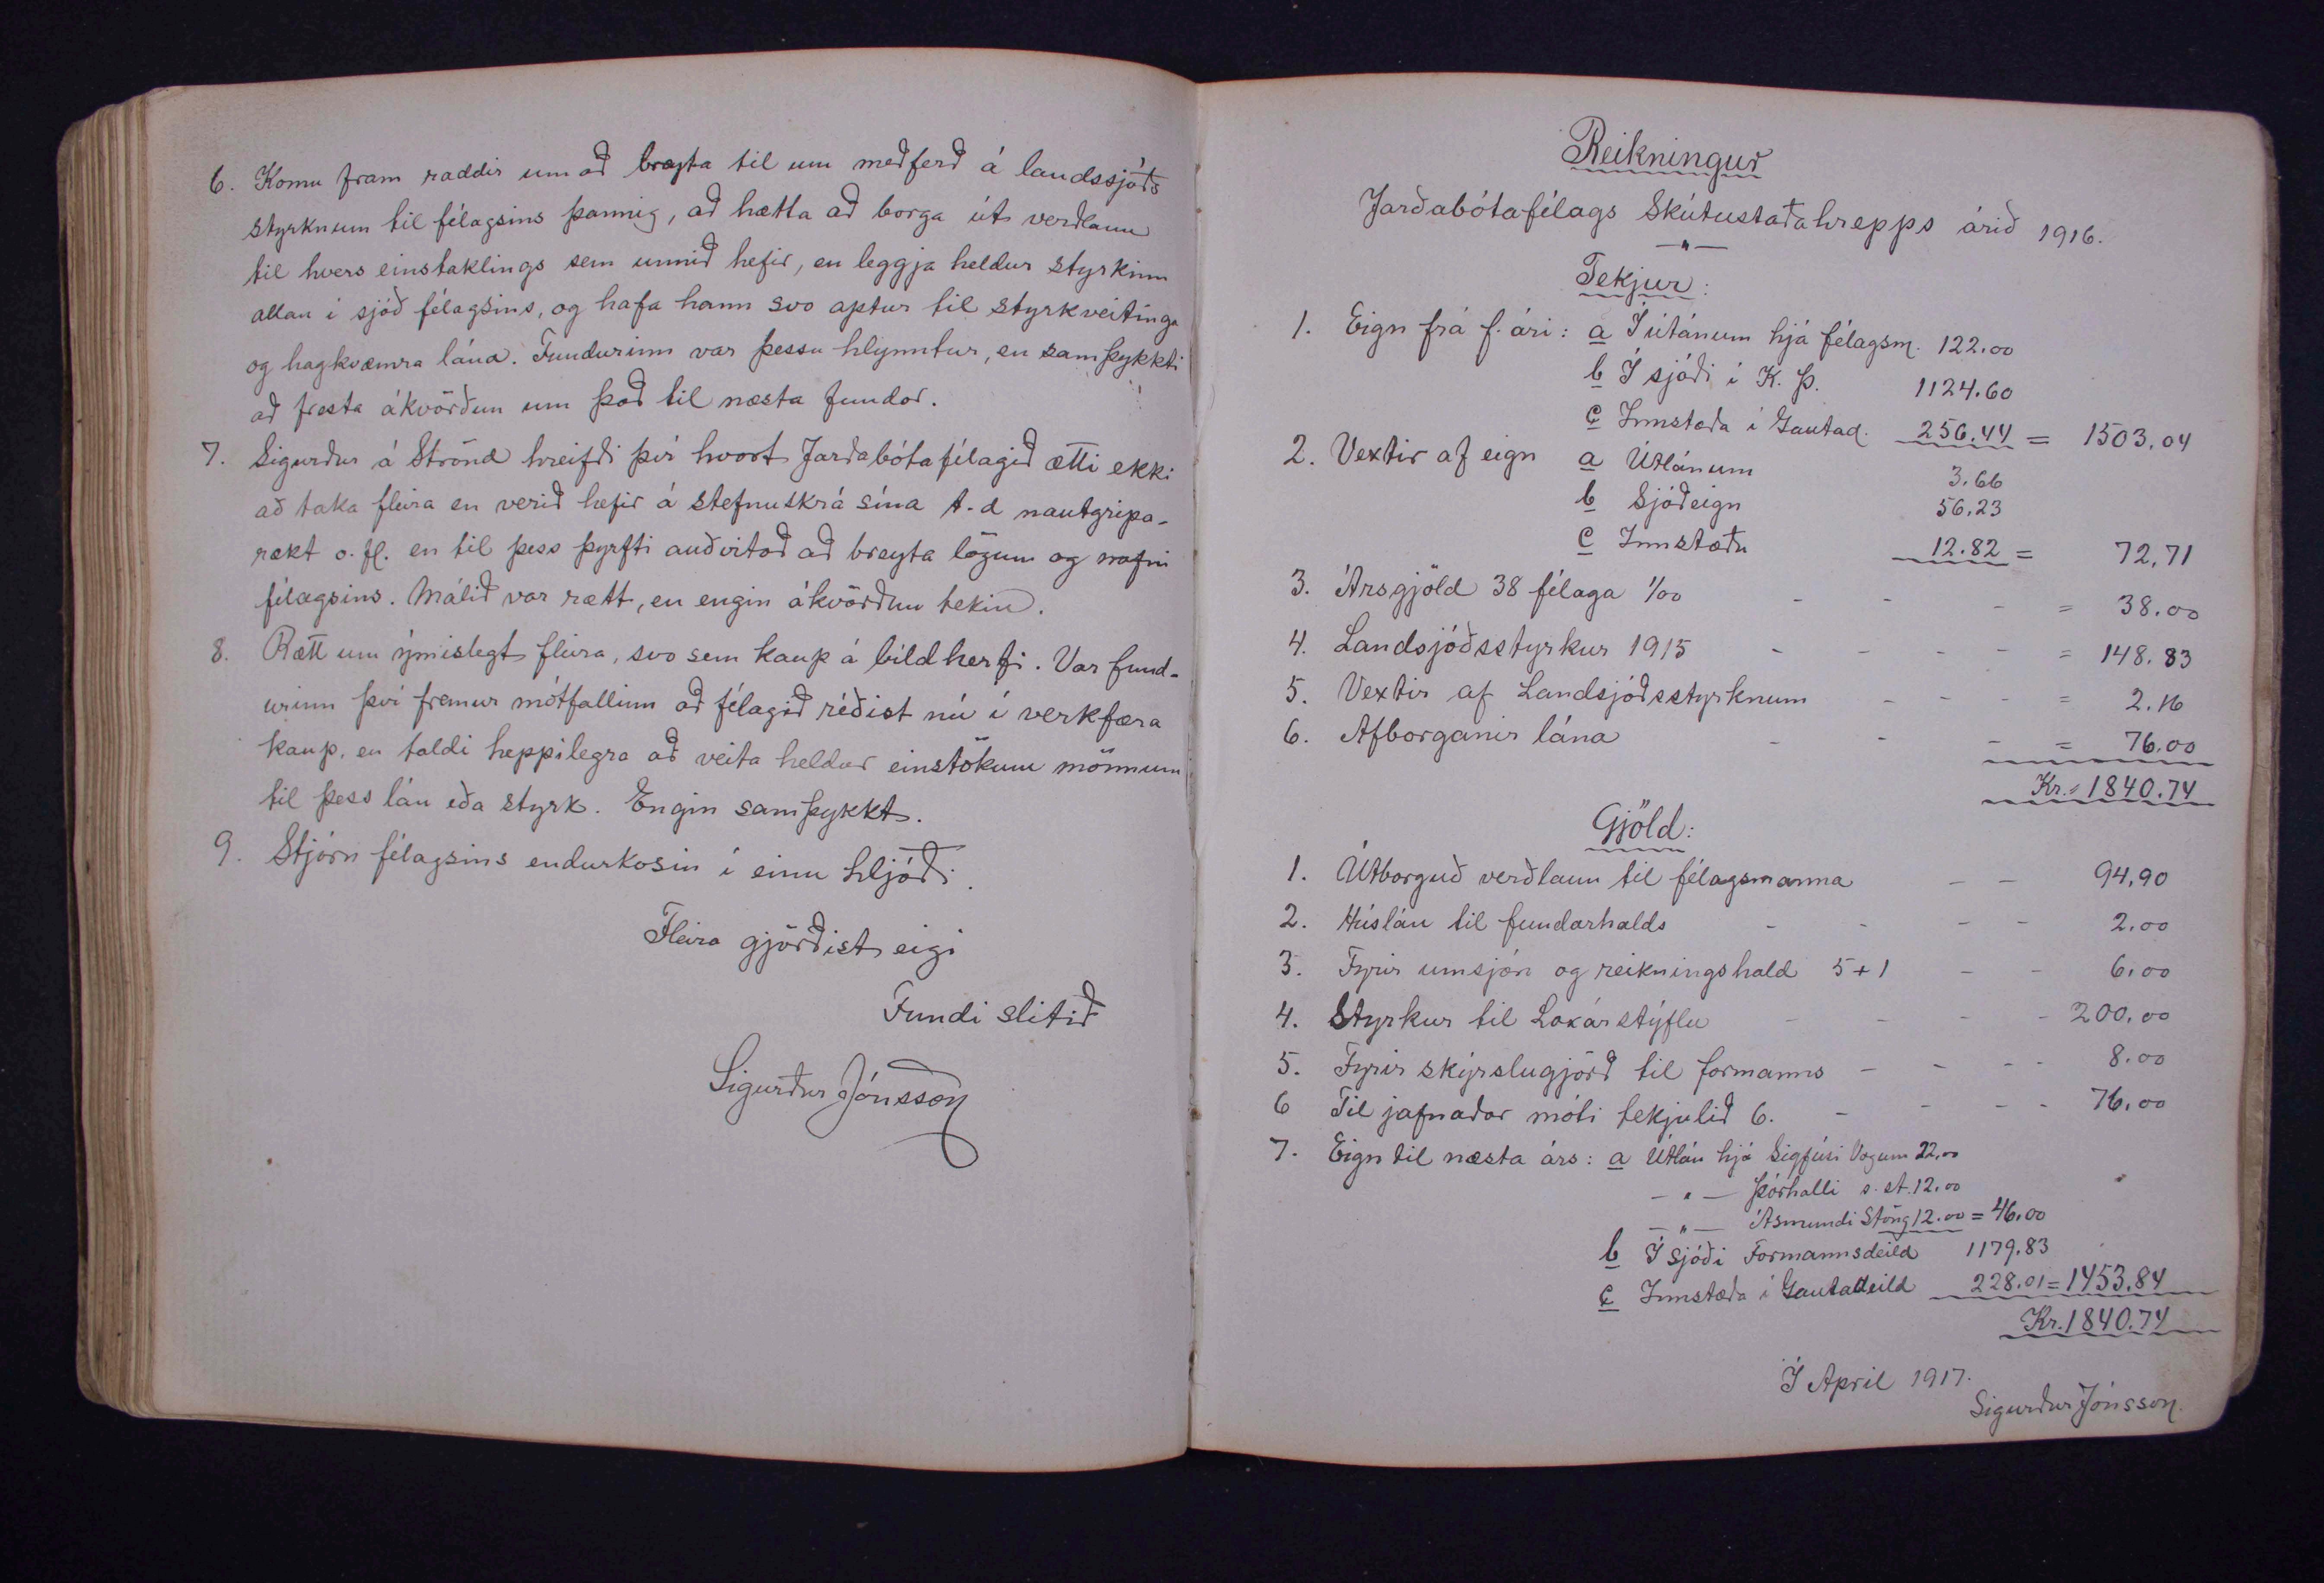 6. Komu fram raddir um að breyta til um meðferð á landssjóðs
styrknum til félagsins þannig, að hætta að borga út verðlaun
til hvers einstaklings sem unnið hefir, en leggja heldur styrkinn
allan í sjóð félagsins, og hafa hann svo aptur til styrkveitinga
og hagkvæmra lána. Fundurinn var þessu hlynntur, en samþykkti
að fresta ákvörðun um það til næsta fundar.
7. Sigurður á Strönd hreifði því hvort Jarðabótafélagið ætti ekki
að taka fleira en verið hefir á stefnuskrá sína t.d nautgripa-
rækt o.fl. en til þess þyrfti auðvitað að breyta lögum og nafni
félagsins. Málið var rætt, en engin ákvörðun tekin.
8. Rætt um ýmislegt fleira, svo sem kaup á bíldherfi. Var fund-
urinn því fremur mótfallinn að félagið réðist nú í verkfæra
kaup, en taldi heppilegra að veita heldur einstökum mönnum
til þess lán eða styrk. Engin samþykkt.
9. Stjórn félagsins endurkosin í einu hljóði.
Fleira gjörðist eigi
Fundi slitið
Sigurður Jónsson
Reikningur
Jarðabótafélags Skútustaðahrepps árið 1916.
—"—
Tekjur:
1. Eign frá f. ári: a Í útánum hjá félagsm. 122.00
b Í sjóði í K. Þ. 1124.60
c Innstæða í Gautad. 256.44 = 1503,04
2. Vextir af eign a Útlánum 3.66
b Sjóðeign 56,23
c Innstæðu 12.82 = 72,71
3. Ársgjöld 38 félaga 1/00 - - - = 38.00
4. Landsjóðsstyrkur 1915 - - - - = 148.83
5. Vextir af Landsjóðsstyrknum - - - = 2.16
6. Afborganir lána - - - = 76.00
Kr. = 1840.74
Gjöld:
1. Útborguð verðlaun til félagsmanna - - 94,90
2. Húslán til fundarhalds - - - - 2,00
3. Fyrir umsjón og reikningshald 5+1 - - 6,00
4. Styrkur til Laxárstýflu - - - - 200,00
5. Fyrir skýrslugjörð til formanns - - - - 8.00
6 Til jafnaðar móti tekjulið 6. - - - - 76,00
7. Eign til næsta árs: a Útlán hjá Sigfúsi Vogum 22,00
—"— Þórhalli s. st. 12.00
—"— Ásmundi Stöng 12.00 = 46,00
b Í sjóði Formannsdeild 1179,83
c Innstæða í Gautadeild 228.01 = 1453.84
Kr. 1840.74
Í April 1917.
Sigurður Jónsson.